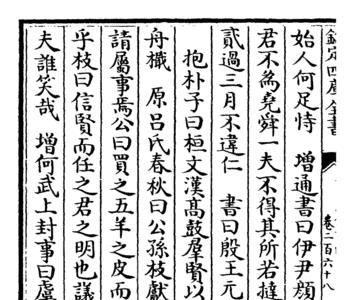 欽定四庫全書
卷二百六十八
始人何足恃　增通書曰伊尹顔
君不爲堯舜一夫不得其所若撻
貳過三月不違仁　書曰殷王元
抱朴子曰桓文漢高鼓羣賢以
舟檝　原吕氏春秋曰公孫枝獻
請屬事焉公曰買之五羊之皮而
乎枝曰信賢而任之君之明也議
夫誰笑哉　增何武上封事曰虞